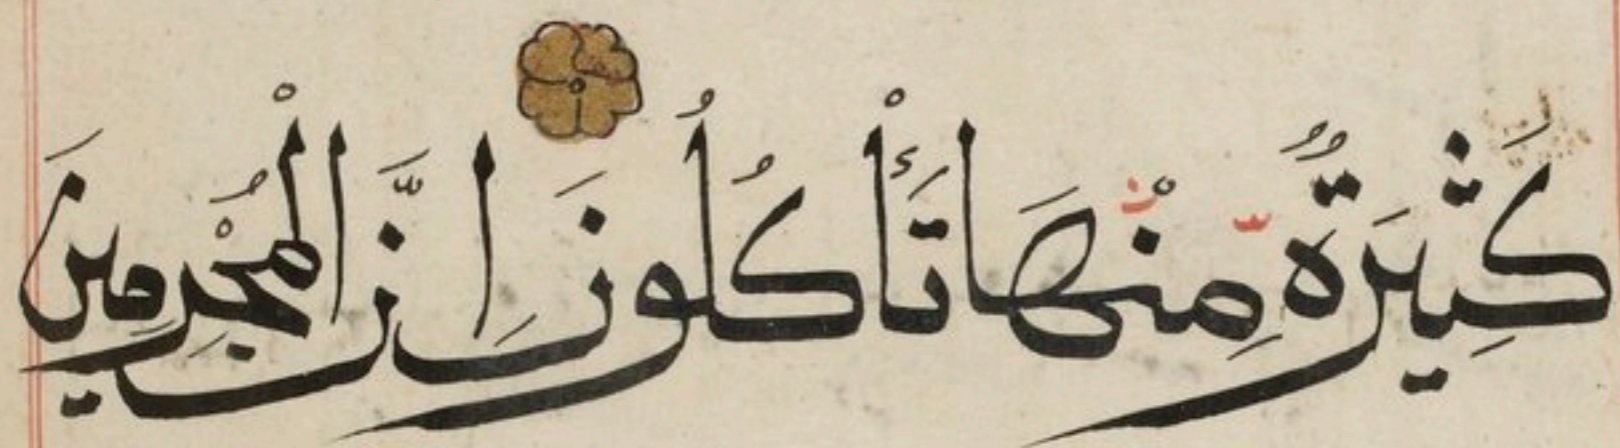 كَثِيرَةٌ مِنْهَا تَأْكُلُونَ إِنَّ الْمُجْرِمِينَ